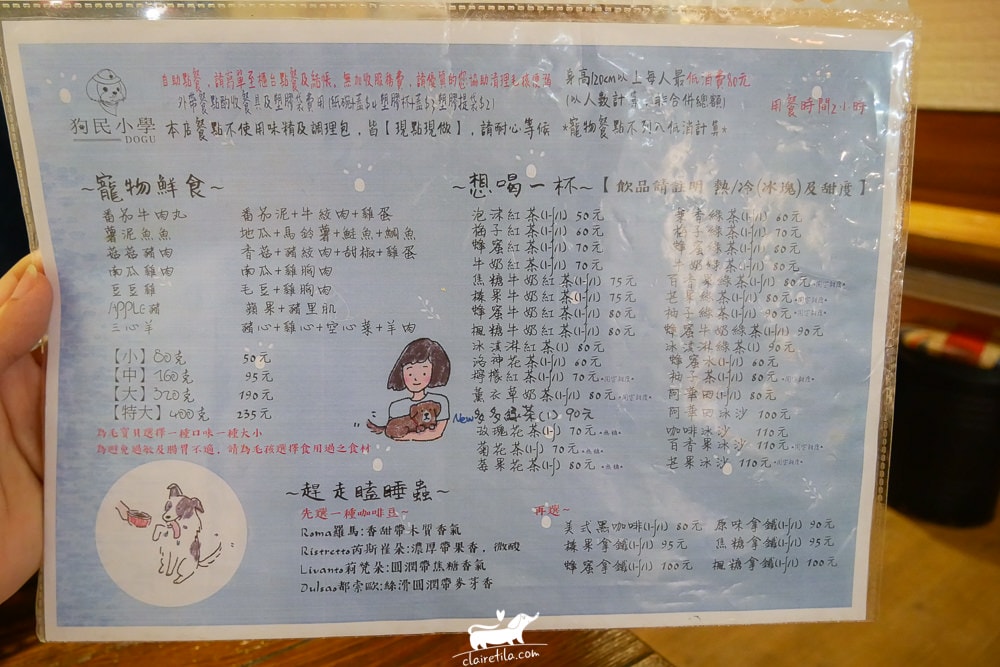 自助點餐，請簡單至櫃台點餐及結帳，無加收服務費，請優質的您協助清理毛孩便溺
外帶餐點酌收餐具及塑膠袋費用(紙碗+蓋$4 塑膠杯+蓋$3 塑膠提袋$2)
身高120cm以上每人最低消費80元
(以人數計算，非合併總額)
用餐時間2小時
狗民小學
DOGU
本店餐點不使用味精及調理包，皆【現點現做】，請耐心等候 *寵物餐點不列入低消計算*
~寵物鮮食~
番茄牛肉丸 番茄泥+牛絞肉+雞蛋
薯泥魚魚 地瓜+馬鈴薯+鮭魚+鯛魚
菇菇豬肉 香菇+豬絞肉+甜椒+雞蛋
南瓜雞肉 南瓜+雞胸肉
豆豆雞 毛豆+雞胸肉
APPLE豬 蘋果+豬里肌
三心羊 豬心+雞心+空心菜+羊肉
【小】80克 50元
【中】160克 95元
【大】320克 190元
【特大】400克 235元
為毛寶貝選擇一種口味一種大小
為避免過敏及腸胃不適，請為毛孩選擇食用過之食材
~想喝一杯~【飲品請註明 熱/冷(冰塊)及甜度】
泡沫紅茶(H/I) 50元
梅子紅茶(H/I) 60元
蜂蜜紅茶(H/I) 70元
牛奶紅茶(H/I) 70元
焦糖牛奶紅茶(H/I) 75元
榛果牛奶紅茶(H/I) 75元
蜂蜜牛奶紅茶(H/I) 80元
楓糖牛奶紅茶(H/I) 80元
冰淇淋紅茶(I) 80元
洛神花茶(H/I) 60元
檸檬紅茶(H/I) 70元 *固定甜度*
薰衣草奶茶(H/I) 80元 *固定甜度*
New 多多綠茶(I) 90元
玫瑰花茶(H) 70元 *無糖*
菊花茶(H) 70元 *無糖*
莓果花茶(H) 80元 *無糖*
茉香綠茶(H/I) 60元
梅子綠茶(H/I) 70元
蜂蜜綠茶(H/I) 80元
牛奶綠茶(H/I) 80元
百香綠茶(H/I) 80元 *固定甜度*
芒果綠茶(H/I) 80元 *固定甜度*
柚子綠茶(H/I) 90元 *固定甜度*
蜂蜜牛奶綠茶(H/I) 90元
冰淇淋綠茶(I) 90元
蜂蜜水(H/I) 60元
柚子茶(H/I) 80元 *固定甜度*
阿華田(H/I) 80元
阿華田冰沙 100元
咖啡冰沙 110元
百香果冰沙 110元 *固定甜度*
芒果冰沙 110元 *固定甜度*
~趕走瞌睡蟲~
先選一種咖啡豆~
Roma羅馬:香甜帶木質香氣
Ristretto芮斯崔朵:濃厚帶果香，微酸
Livanto莉梵朵:圓潤帶焦糖香氣
Dulsao都索歐:絲滑圓潤帶麥芽香
再選~
美式黑咖啡(H/I) 80元 原味拿鐵(H/I) 90元
榛果拿鐵(H/I) 95元 焦糖拿鐵(H/I) 95元
蜂蜜拿鐵(H/I) 100元 楓糖拿鐵(H/I) 100元
clairetila.com